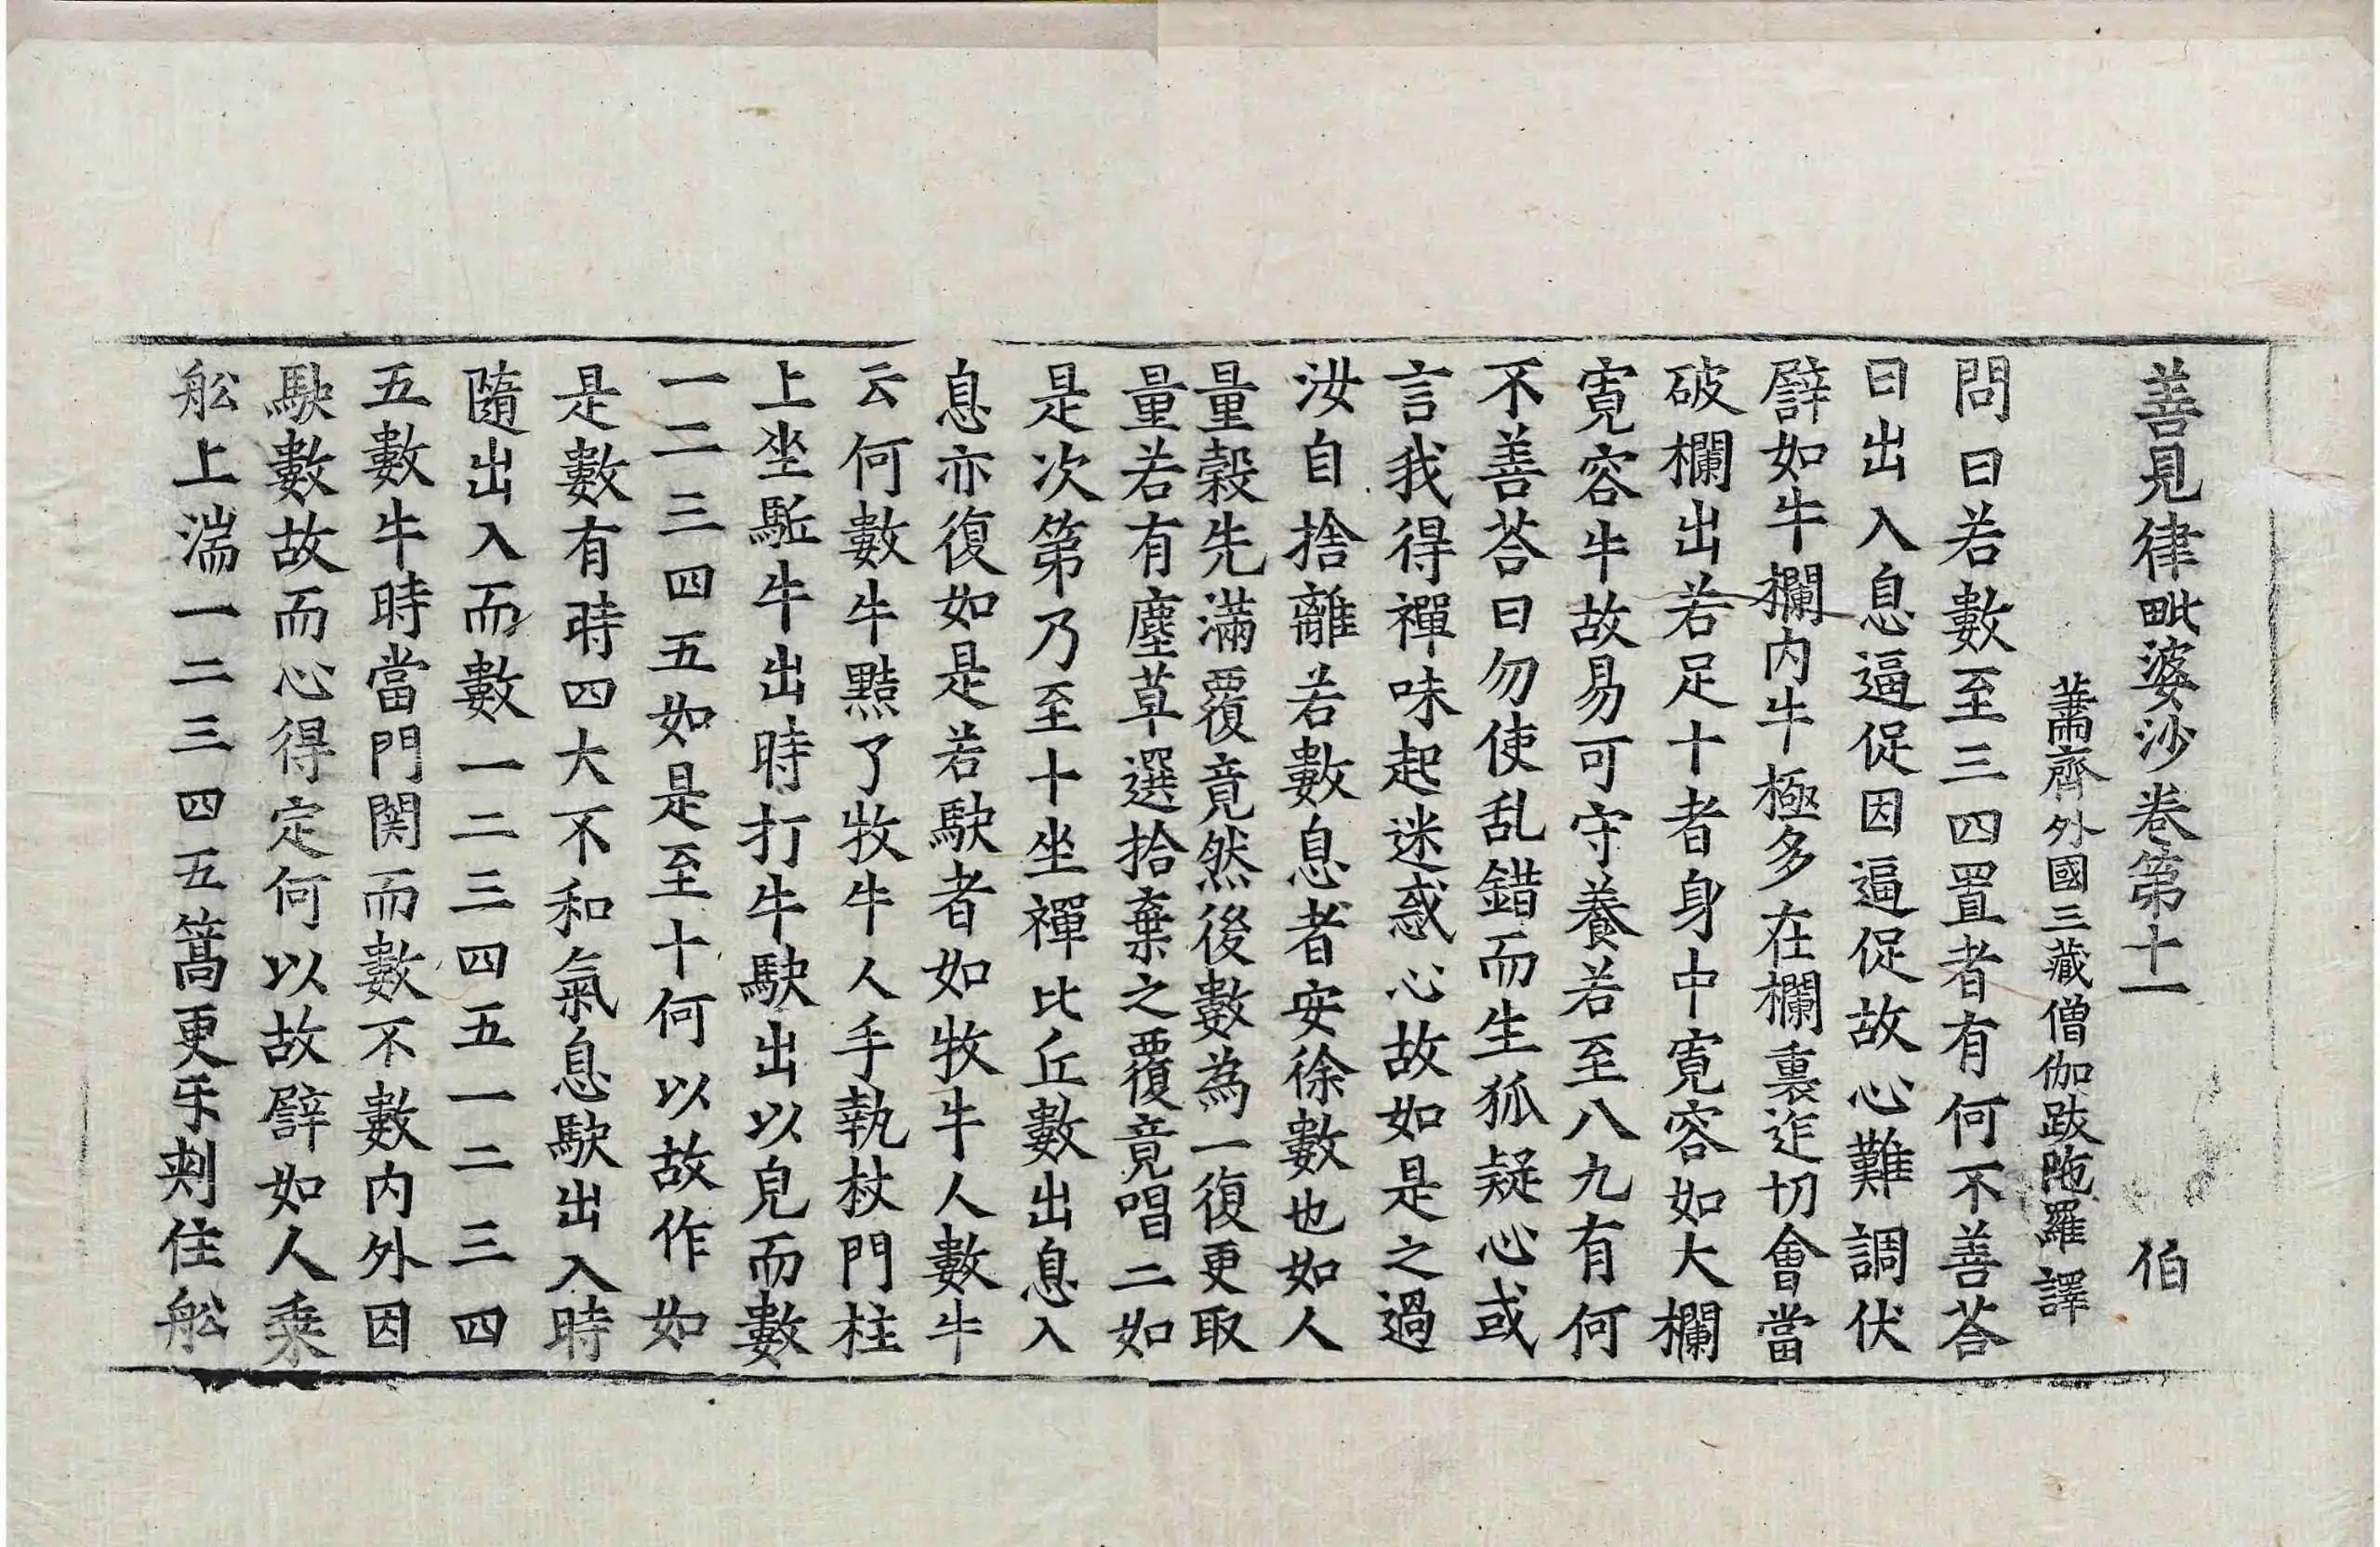 善見律毗婆沙卷第十一　伯
蕭齊外國三藏僧伽跋陁羅譯
問曰若數至三四置者有何不善荅
曰出入息逼促因逼促故心難調伏
譬如牛欄内牛極多在欄裏迮切會當
破欄出若足十者身中寬容如大欄
寬容牛故易可守養若至八九有何
不善荅曰勿使乱錯而生狐疑心或
言我得禪味起迷惑心故如是之過
汝自捨離若數息者安徐數也如人
量穀先滿覆竟然後數為一復更取
量若有塵草選拾棄之覆竟唱二如
是次第乃至十坐禪比丘數出息入
息亦復如是若駃者如牧牛人數牛
云何數牛黠了牧牛人手執杖門柱
上坐駈牛出時打牛駃出以皃而數
一二三四五如是至十何以故作如
是數有時四大不和氣息駃出入時
隨出入而數一二三四五一二三四
五數牛時當門関而數不數内外因
駃數故而心得定何以故譬如人乘
舩上湍一二三四五篙更牙刾住舩